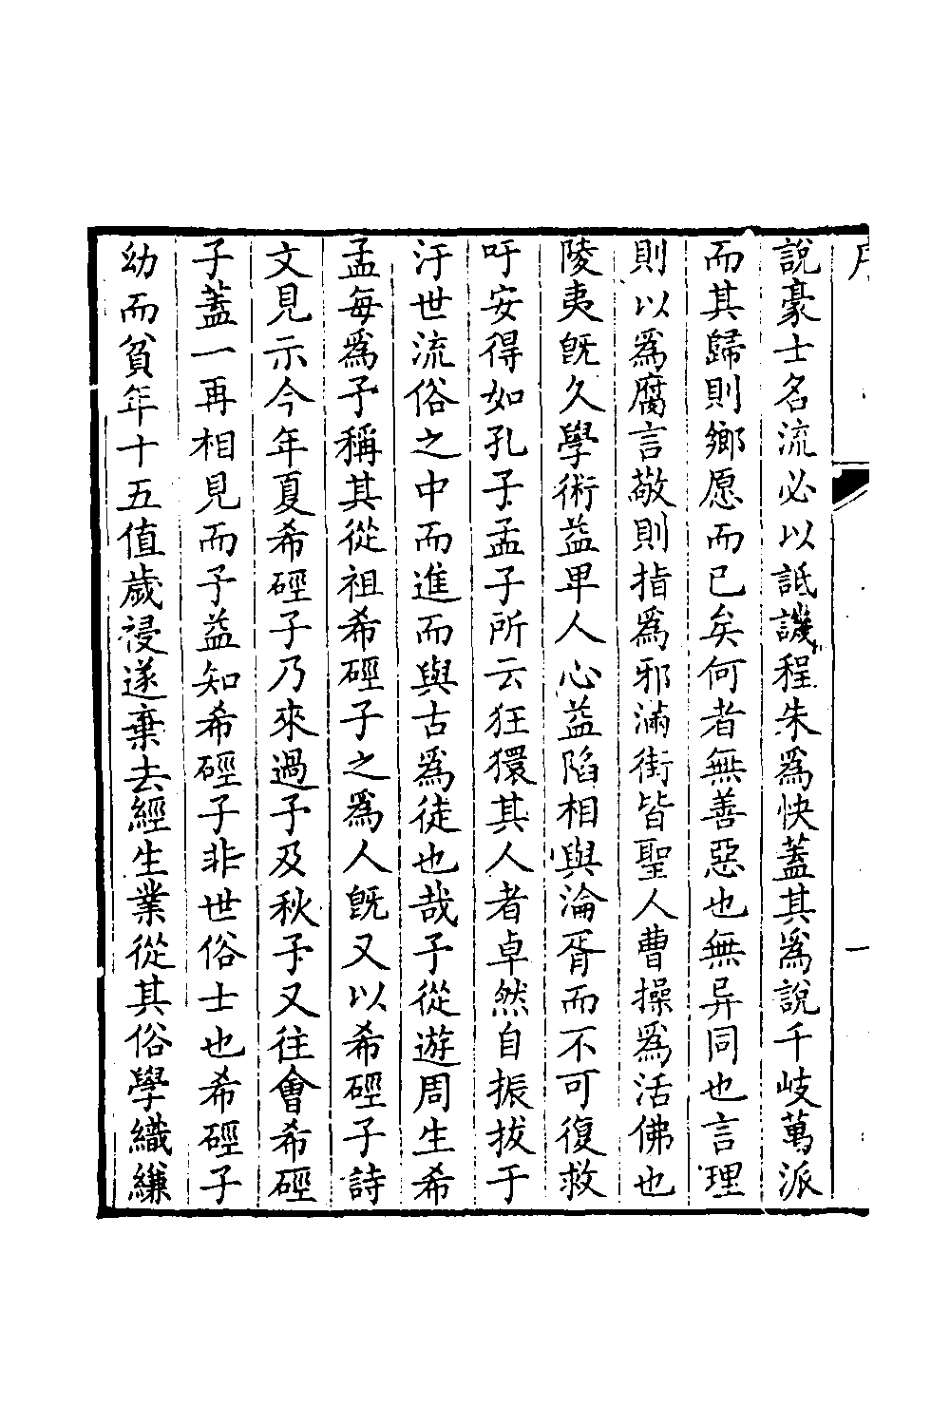 序
一
說豪士名流必以詆譏程朱爲快蓋其爲說千岐萬派
而其歸則鄉愿而已矣何者無善惡也無异同也言理
則以爲腐言敬則指爲邪滿街皆聖人曹操爲活佛也
陵夷旣久學術益卑人心益陷相與淪胥而不可復救
吁安得如孔子孟子所云狂獧其人者卓然自振拔于
汙世流俗之中而進而與古爲徒也哉予從遊周生希
孟每爲予稱其從祖希硜子之爲人旣又以希硜子詩
文見示今年夏希硜子乃來過予及秋予又往會希硜
子蓋一再相見而予益知希硜子非世俗士也希硜子
幼而貧年十五值歲祲遂棄去經生業從其俗學織縑